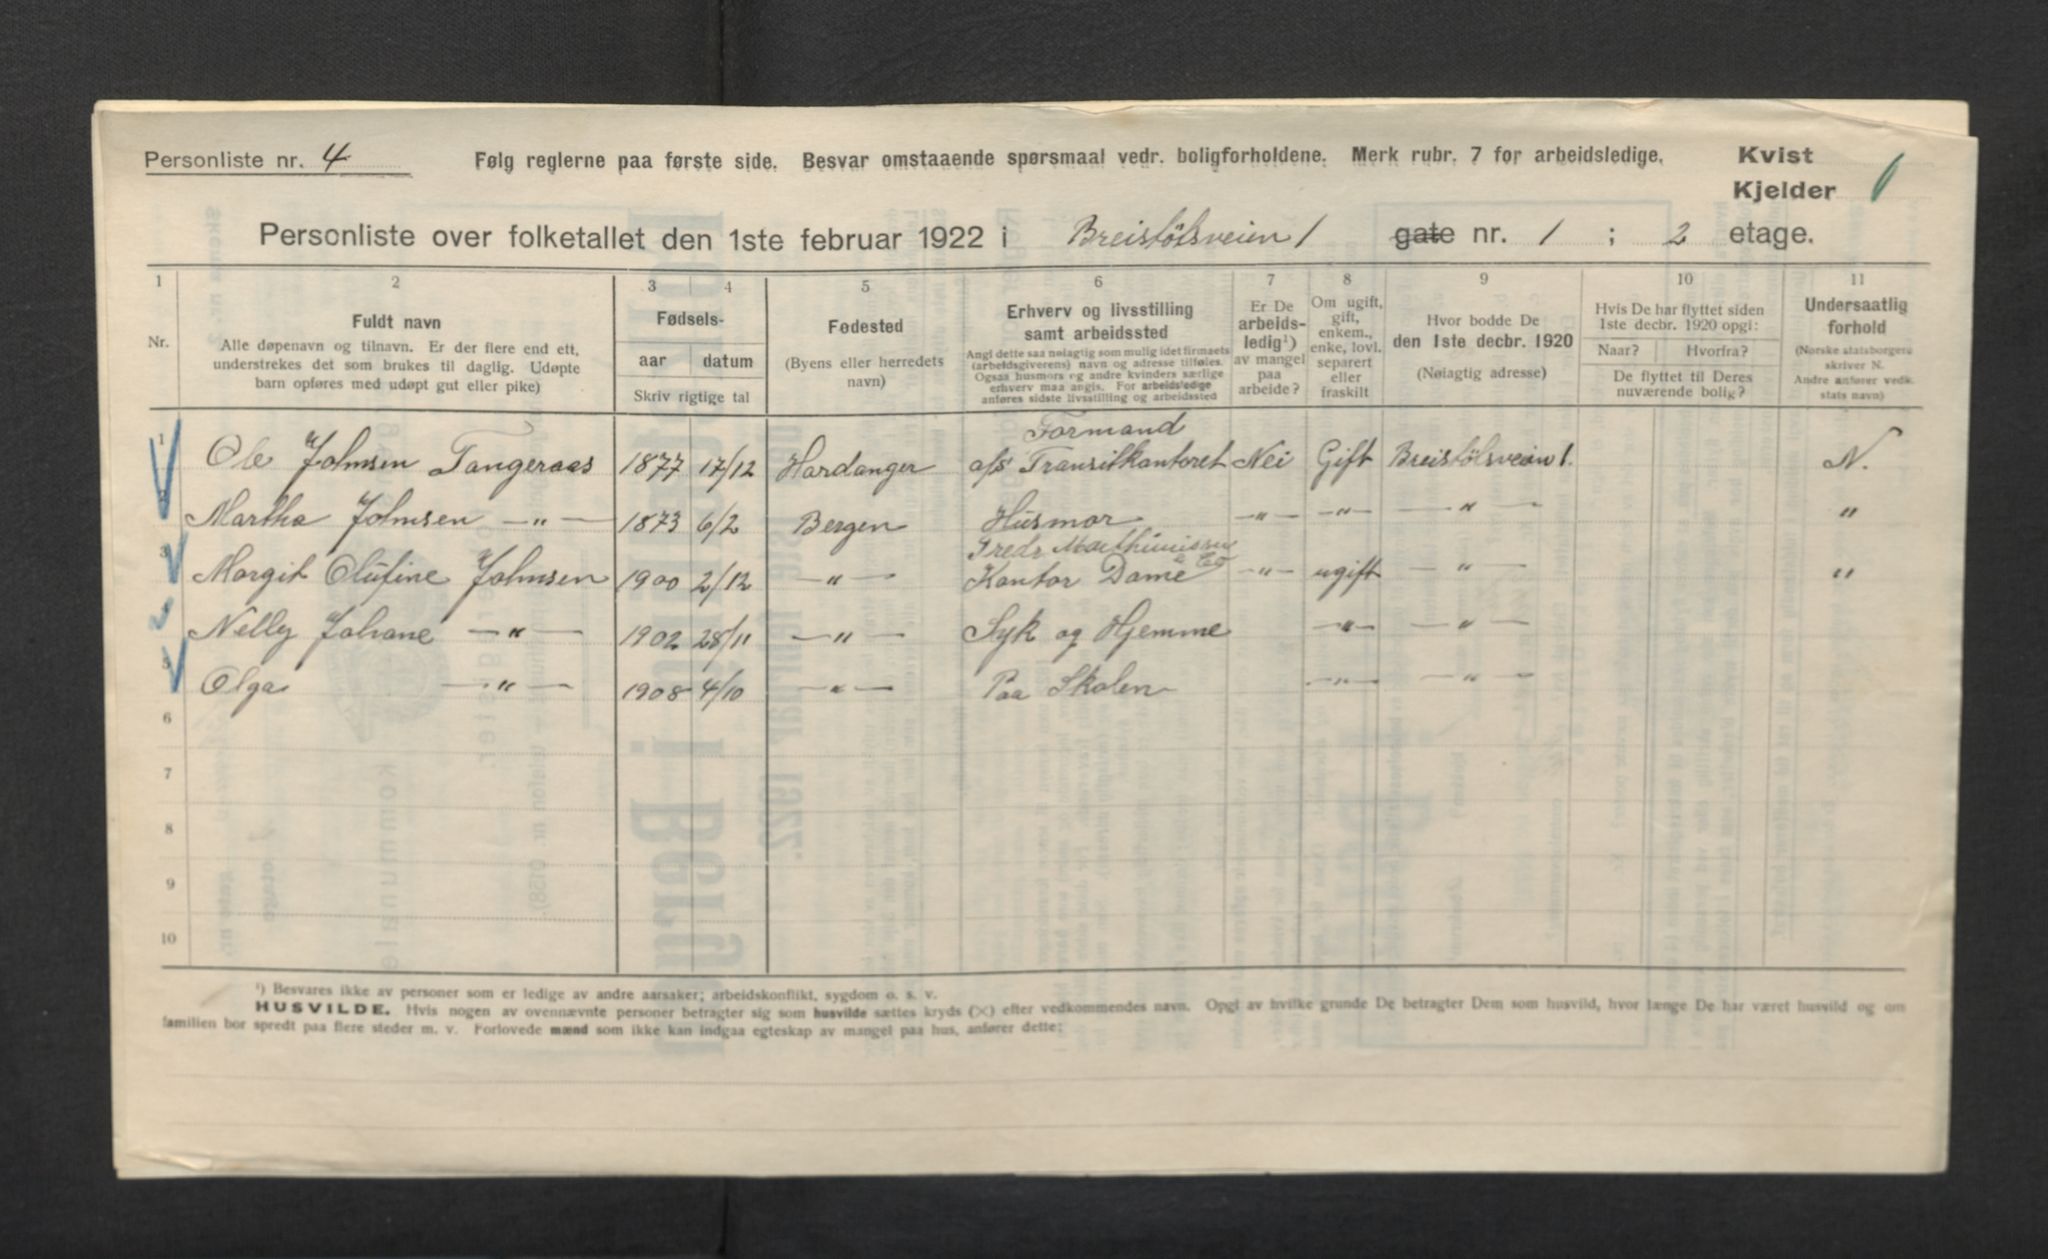 Personliste nr. 4 Følg reglerne paa første side. Besvar omstaaende spørsmaal vedr. boligforholdene. Merk rubr. 7 for arbeidsledige. Kvist
Kjelder
Personliste over folketallet den 1ste februar 1922 i Breistølsveien 1 gate nr. 1 ; 2 etage.
1 2 3 4 5 6 7 8 9 10 11
Nr.
Fuldt navn
Alle døpenavn og tilnavn. Er der flere end ett,
understrekes det som brukes til daglig. Udøpte
barn opføres med udøpt gut eller pike)
Fødsels-
aar datum
Skriv rigtige tal
Fødested
(Byens eller herredets
navn)
Erhverv og livsstilling
samt arbeidssted
Angi dette saa nøiagtig som mulig idet firmaets
(arbeidsgiverens) navn og adresse tilføies.
Ogsaa husmors og andre kvinders særlige
erhverv maa angis. For arbeidsledige
anføres sidste livsstilling og arbeidssted
Er De
arbeids-
ledig¹)
av mangel
paa
arbeide?
Om ugift,
gift,
enkem.,
enke, lovl.
separert
eller
fraskilt
Hvor bodde De
den 1ste decbr. 1920
(Nøiagtig adresse)
Hvis De har flyttet siden
1ste decbr. 1920 opgi:
Naar? Hvorfra?
De flyttet til Deres
nuværende bolig?
Undersaatlig
forhold
(Norske statsborgere
skriver N.
Andre anfører vedk.
stats navn)
Formand
1 Ole Johnsen Tangeraas 1877 17/12 Hardanger a/s Transitkantoret Nei Gift Breistølsveien 1. N.
2 Martha Johnsen —"— 1873 6/2 Bergen Husmor —"— —"— —"— "
Fredr Mathiuissen
& Co
3 Margit Olufine Johnsen 1900 2/12 —"— Kantor Dame —"— ugift —"— "
4 Nelly Johane —"— 1902 28/11 —"— Syk og Hjemme —"— —"—
5 Olga —"— 1908 4/10 —"— Paa Skolen —"— —"—
6
7
8
9
10
¹) Besvares ikke av personer som er ledige av andre aarsaker; arbeidskonflikt, sygdom o. s. v.
HUSVILDE. Hvis nogen av ovennævnte personer betragter sig som husvilde sættes kryds (×) efter vedkommendes navn. Opgi av hvilke grunde De betragter Dem som husvild, hvor længe De har været husvild og om
familien bor spredt paa flere steder m. v. Forlovede mænd som ikke kan indgaa egteskap av mangel paa hus, anfører dette: